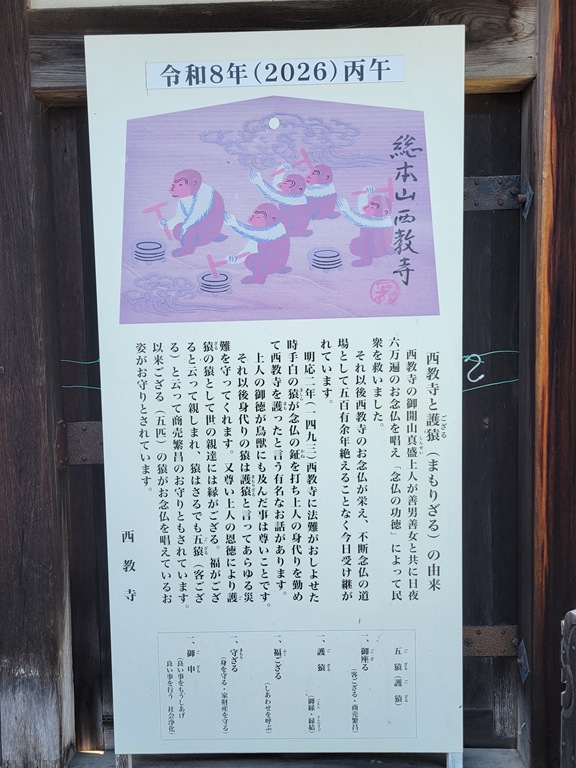 令和8年(2026)丙午
総本山西教寺
西教寺と護猿(まもりざる)の由来
西教寺の御開山真盛上人が善男善女と共に日夜
六万遍のお念仏を唱え「念仏の功徳」によって民
衆を救いました。
それ以後西教寺のお念仏が栄え、不断念仏の道
場として五百有余年絶えることなく今日受け継が
れています。
明応二年(一四九三)西教寺に法難がおしよせた
時手白の猿が念仏の鉦を打ち上人の身代りを勤め
て西教寺を護ったと言う有名なお話があります。
上人の御徳が鳥獣にも及んだ事は尊いことです。
それ以後身代りの猿は護猿と言ってあらゆる災
難を守ってくれます。又尊い上人の恩徳により護
猿の猿として世の親達には縁がござる。福がござ
ると云って親しまれ、猿はさるでも五猿(客ござ
る)と云って商売繁昌のお守りともされています。
以来ござる(五匹)の猿がお念仏を唱えているお
姿がお守りとされています。
西教寺
五猿(護猿)
一、御座る
(客ござる・商売繁昌)
一、護猿
(御縁・縁結)
一、福ござる
(しあわせを呼ぶ)
一、守ざる
(身を守る・家財産を守る)
一、御申
(良い事をもうしあげ
良い事を行う 社会浄化)